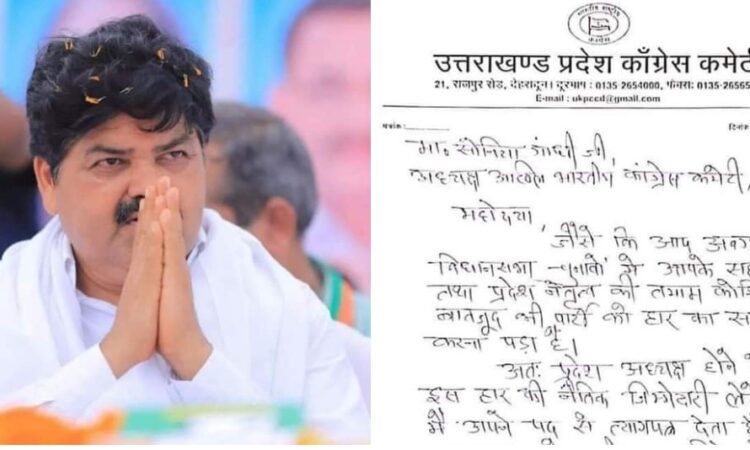 उत्तराखण्ड प्रदेश काँग्रेस कमेटी
21, राजपुर रोड, देहरादून। दूरभाष : 0135 2654000, फैक्स: 0135-26565
E-mail : ukpccd@gmail.com
पत्रांक:
दिनां
मा॰ सोनिया गांधी जी,
अध्यक्ष अखिल भारतीय कांग्रेस कमेटी,
महोदया,
जैसे कि आप अवग
विधानसभा चुनावों में आपके सह
तथा प्रदेश नेतृत्व की तमाम कोशि
बावजूद भी पार्टी को हार का सा
करना पड़ा है।
अतः प्रदेश अध्यक्ष होने क
इस हार की नैतिक जिम्मेदारी ले
मैं अपने पद से त्यागपत्र देता हूँ